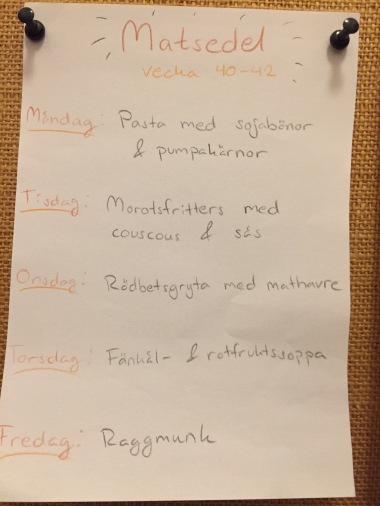 Matsedel
vecka 40-42
Måndag: Pasta med sojabönor
& pumpakärnor
Tisdag: Morotsfritters med
couscous & sås
Onsdag: Rödbetsgryta med mathavre
Torsdag: Fänkål- & rotfruktssoppa
Fredag: Raggmunk